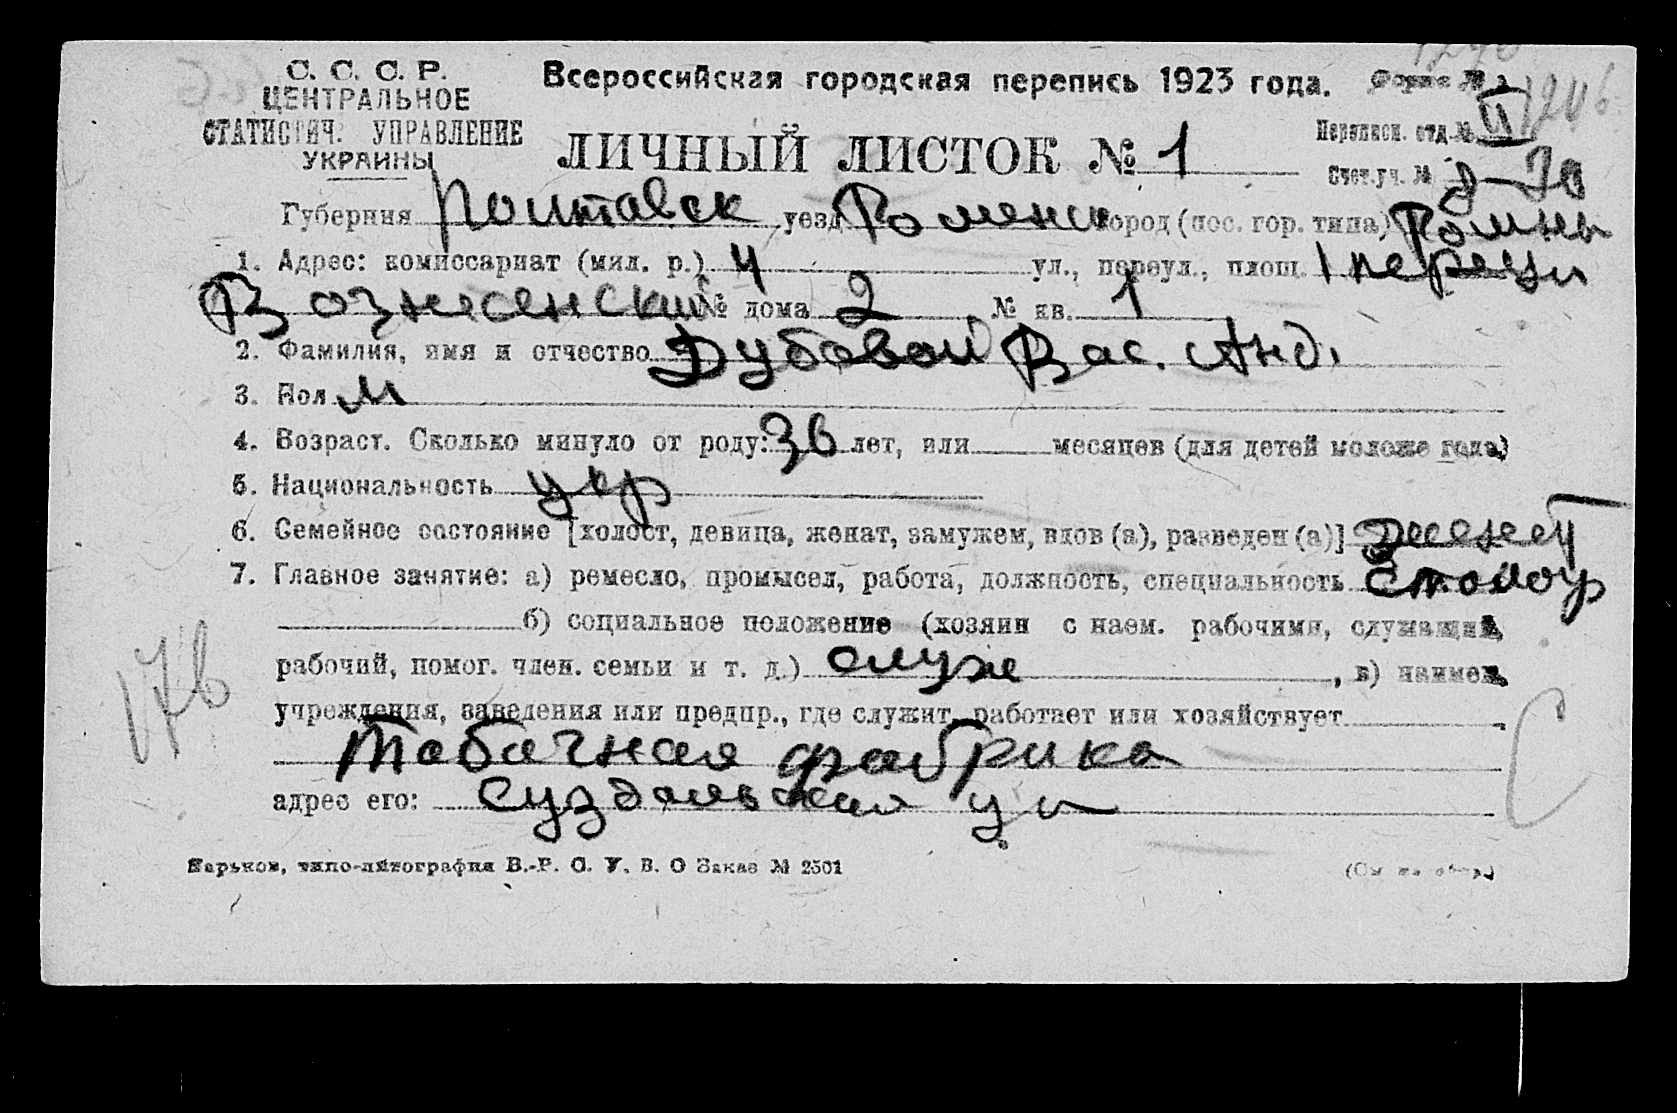 С. С. С. Р.
ЦЕНТРАЛЬНОЕ
СТАТИСТИЧ. УПРАВЛЕНИЕ
УКРАИНЫ
Всероссийская городская перепись 1923 года.
Форма №
1246
ЛИЧНЫЙ ЛИСТОК № 1
Переписн. отд. № II
Счет. уч. №
Губерния Полтавск уезд Роменск город (пос. гор. типа) Ромны
1. Адрес: комиссариат (мил. р.) 4 ул., переул., площ. 1 переул
Вознесенский № дома 2 № кв. 1
2. Фамилия, имя и отчество Дубовой Вас. Анд.
3. Пол м
4. Возраст. Сколько минуло от роду: 36 лет, или месяцев (для детей моложе года)
5. Национальность укр
6. Семейное состояние [холост, девица, женат, замужем, вдов (а), разведен (а)] женат
7. Главное занятие: а) ремесло, промысел, работа, должность, специальность Столяр
б) социальное положение (хозяин с наем. рабочими, служащий,
рабочий, помог. член. семьи и т. д.) служ, в) наимен.
учреждения, заведения или предпр., где служит, работает или хозяйствует
Табачная фабрика
адрес его: Суздальская ул
176
С
Харьков, типо-литография В.-Р. С. У. В. О Заказ № 2501